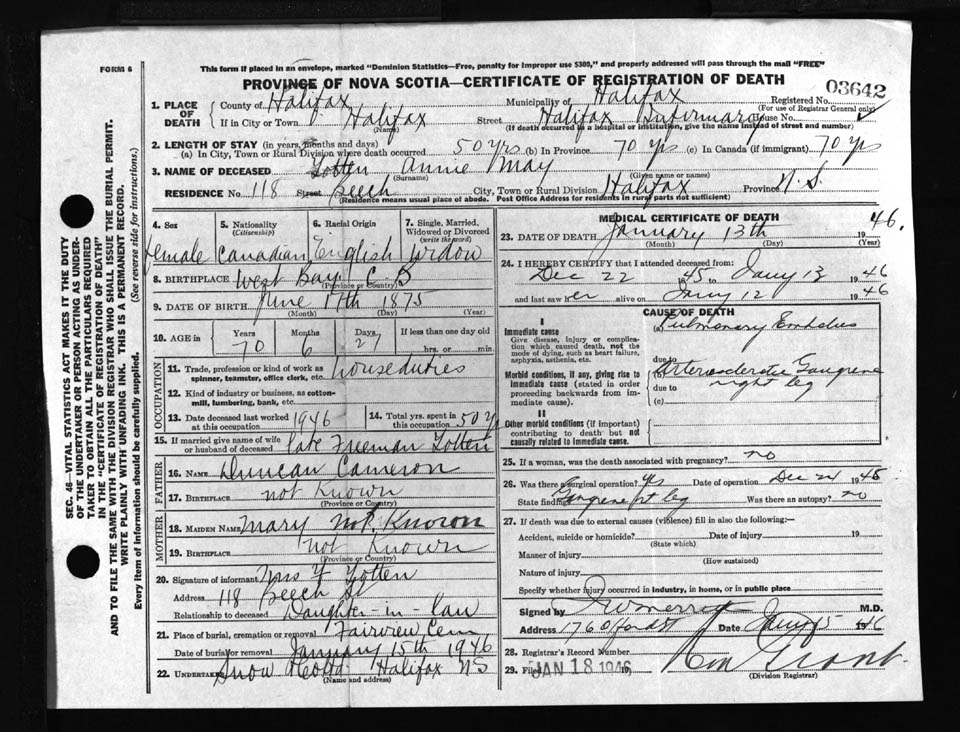 FORM 6
This form if placed in an envelope, marked "Dominion Statistics—Free, penalty for improper use $300," and properly addressed will pass through the mail "FREE"
PROVINCE OF NOVA SCOTIA—CERTIFICATE OF REGISTRATION OF DEATH
03642
1. PLACE OF DEATH
County of Halifax Municipality of Halifax Registered No.
(For use of Registrar General only)
If in City or Town Halifax Street Halifax Infirmary House No.
(Name) (If death occurred in a hospital or institution, give the name instead of street and number)
2. LENGTH OF STAY (in years, months and days)
(a) In City, Town or Rural Division where death occurred 50 yrs (b) In Province 70 yrs (c) In Canada (if immigrant) 70 yrs
3. NAME OF DECEASED Totten Annie May
(Surname) (Given name or names)
RESIDENCE No. 118 Street Beech City, Town or Rural Division Halifax Province N.S.
(Residence means usual place of abode. Post Office Address for residents in rural parts not sufficient)
4. Sex 5. Nationality 6. Racial Origin 7. Single, Married, Widowed or Divorced
(Citizenship) (write the word)
female Canadian English Widow
8. BIRTHPLACE West Bay C B
(Province or Country)
9. DATE OF BIRTH June 17th 1875
(Month) (Day) (Year)
10. AGE in Years Months Days If less than one day old
70 6 27 hrs. or min.
OCCUPATION
11. Trade, profession or kind of work as spinner, teamster, office clerk, etc. house duties
12. Kind of industry or business, as cotton-mill, lumbering, bank, etc.
13. Date deceased last worked at this occupation 1946 14. Total yrs. spent in this occupation 50 yr
15. If married give name of wife or husband of deceased late Freeman Totten
FATHER
16. NAME Duncan Cameron
17. BIRTHPLACE not Known
(Province or Country)
MOTHER
18. MAIDEN NAME Mary Not Known
19. BIRTHPLACE Not Known
(Province or Country)
20. Signature of informant Mrs F Totten
Address 118 Beech St
Relationship to deceased Daughter-in-law
21. Place of burial, cremation or removal Fairview Cem
Date of burial or removal January 15th 1946
22. UNDERTAKER Snow Halifax NS
(Name and address)
MEDICAL CERTIFICATE OF DEATH
23. DATE OF DEATH January 13th 1946.
(Month) (Day) (Year)
24. I HEREBY CERTIFY that I attended deceased from:
Dec 22 1945 to Jany 13 1946
and last saw her alive on Jany 12 1946
CAUSE OF DEATH
I
Immediate cause
Give disease, injury or complication which caused death, not the mode of dying, such as heart failure, asphyxia, asthenia, etc.
(a) Pulmonary Embolus
due to
Morbid conditions, if any, giving rise to immediate cause (stated in order proceeding backwards from immediate cause).
(b) Arteriosclerotic Gangrene
right leg
due to
(c)
II
Other morbid conditions (if important) contributing to death but not causally related to immediate cause.
25. If a woman, was the death associated with pregnancy? no
26. Was there a surgical operation? yes Date of operation Dec 24 1945
State findings Gangrene rt leg Was there an autopsy? no
27. If death was due to external causes (violence) fill in also the following:—
Accident, suicide or homicide? Date of injury 19
(State which)
Manner of injury
(How sustained)
Nature of injury
Specify whether injury occurred in industry, in home, or in public place
Signed by M.D.
Address Date Jany 15 1946
28. Registrar's Record Number
29. Filed JAN 18 1946 Grant
(Division Registrar)
SEC. 46—VITAL STATISTICS ACT MAKES IT THE DUTY
OF THE UNDERTAKER OR PERSON ACTING AS UNDER-
TAKER TO OBTAIN ALL THE PARTICULARS REQUIRED
IN THE "CERTIFICATE OF REGISTRATION OF DEATH"
AND TO FILE THE SAME WITH THE DIVISION REGISTRAR WHO SHALL ISSUE THE BURIAL PERMIT.
WRITE PLAINLY WITH UNFADING INK. THIS IS A PERMANENT RECORD.
Every item of information should be carefully supplied. (See reverse side for instructions.)